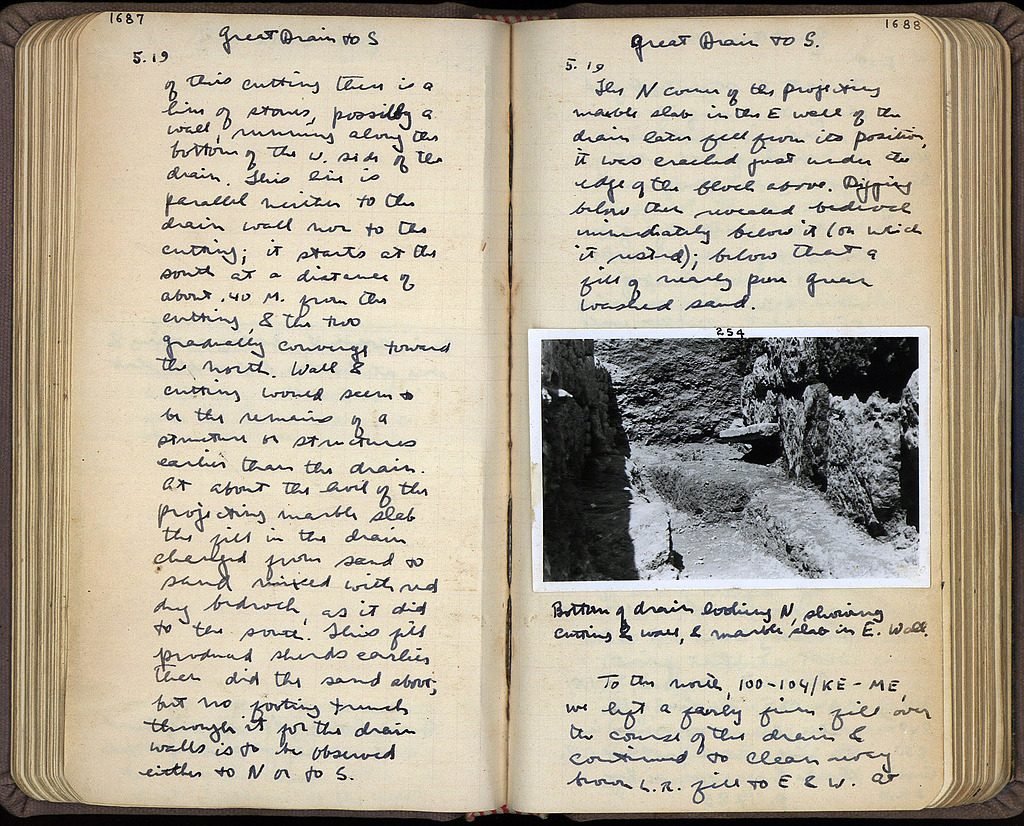 1687
Great Drain to S
5.19
of this cutting there is a
line of stones, possibly a
wall, running along the
bottom of the W. side of the
drain. This line is
parallel neither to the
drain wall nor to the
cutting; it starts at the
south at a distance of
about .40 M. from the
cutting, & the two
gradually converge toward
the north. Wall &
cutting would seem to
be the remains of a
structure or structures
earlier than the drain.
At about the level of the
projecting marble slab
the fill in the drain
changed from sand to
sand mixed with red
dug bedrock, as it did
to the south. This fill
produced sherds earlier
than did the sand above,
but no footing trench
through it for the drain
walls is to be observed
either to N or to S.
1688
Great Drain to S.
5.19
The N corner of the projecting
marble slab in the E wall of the
drain later fell from its position,
it was cracked just under the
edge of the block above. Digging
below then revealed bedrock
immediately below it (on which
it rested); below that a
fill of nearly pure green
washed sand.
254
Bottom of drain looking N, showing
cutting & wall, & marble slab in E. Wall.
To the north, 100-104/KE-ME,
we left a fairly firm fill over
the course of the drain &
continued to clean away
brown L.R. fill to E & W. At